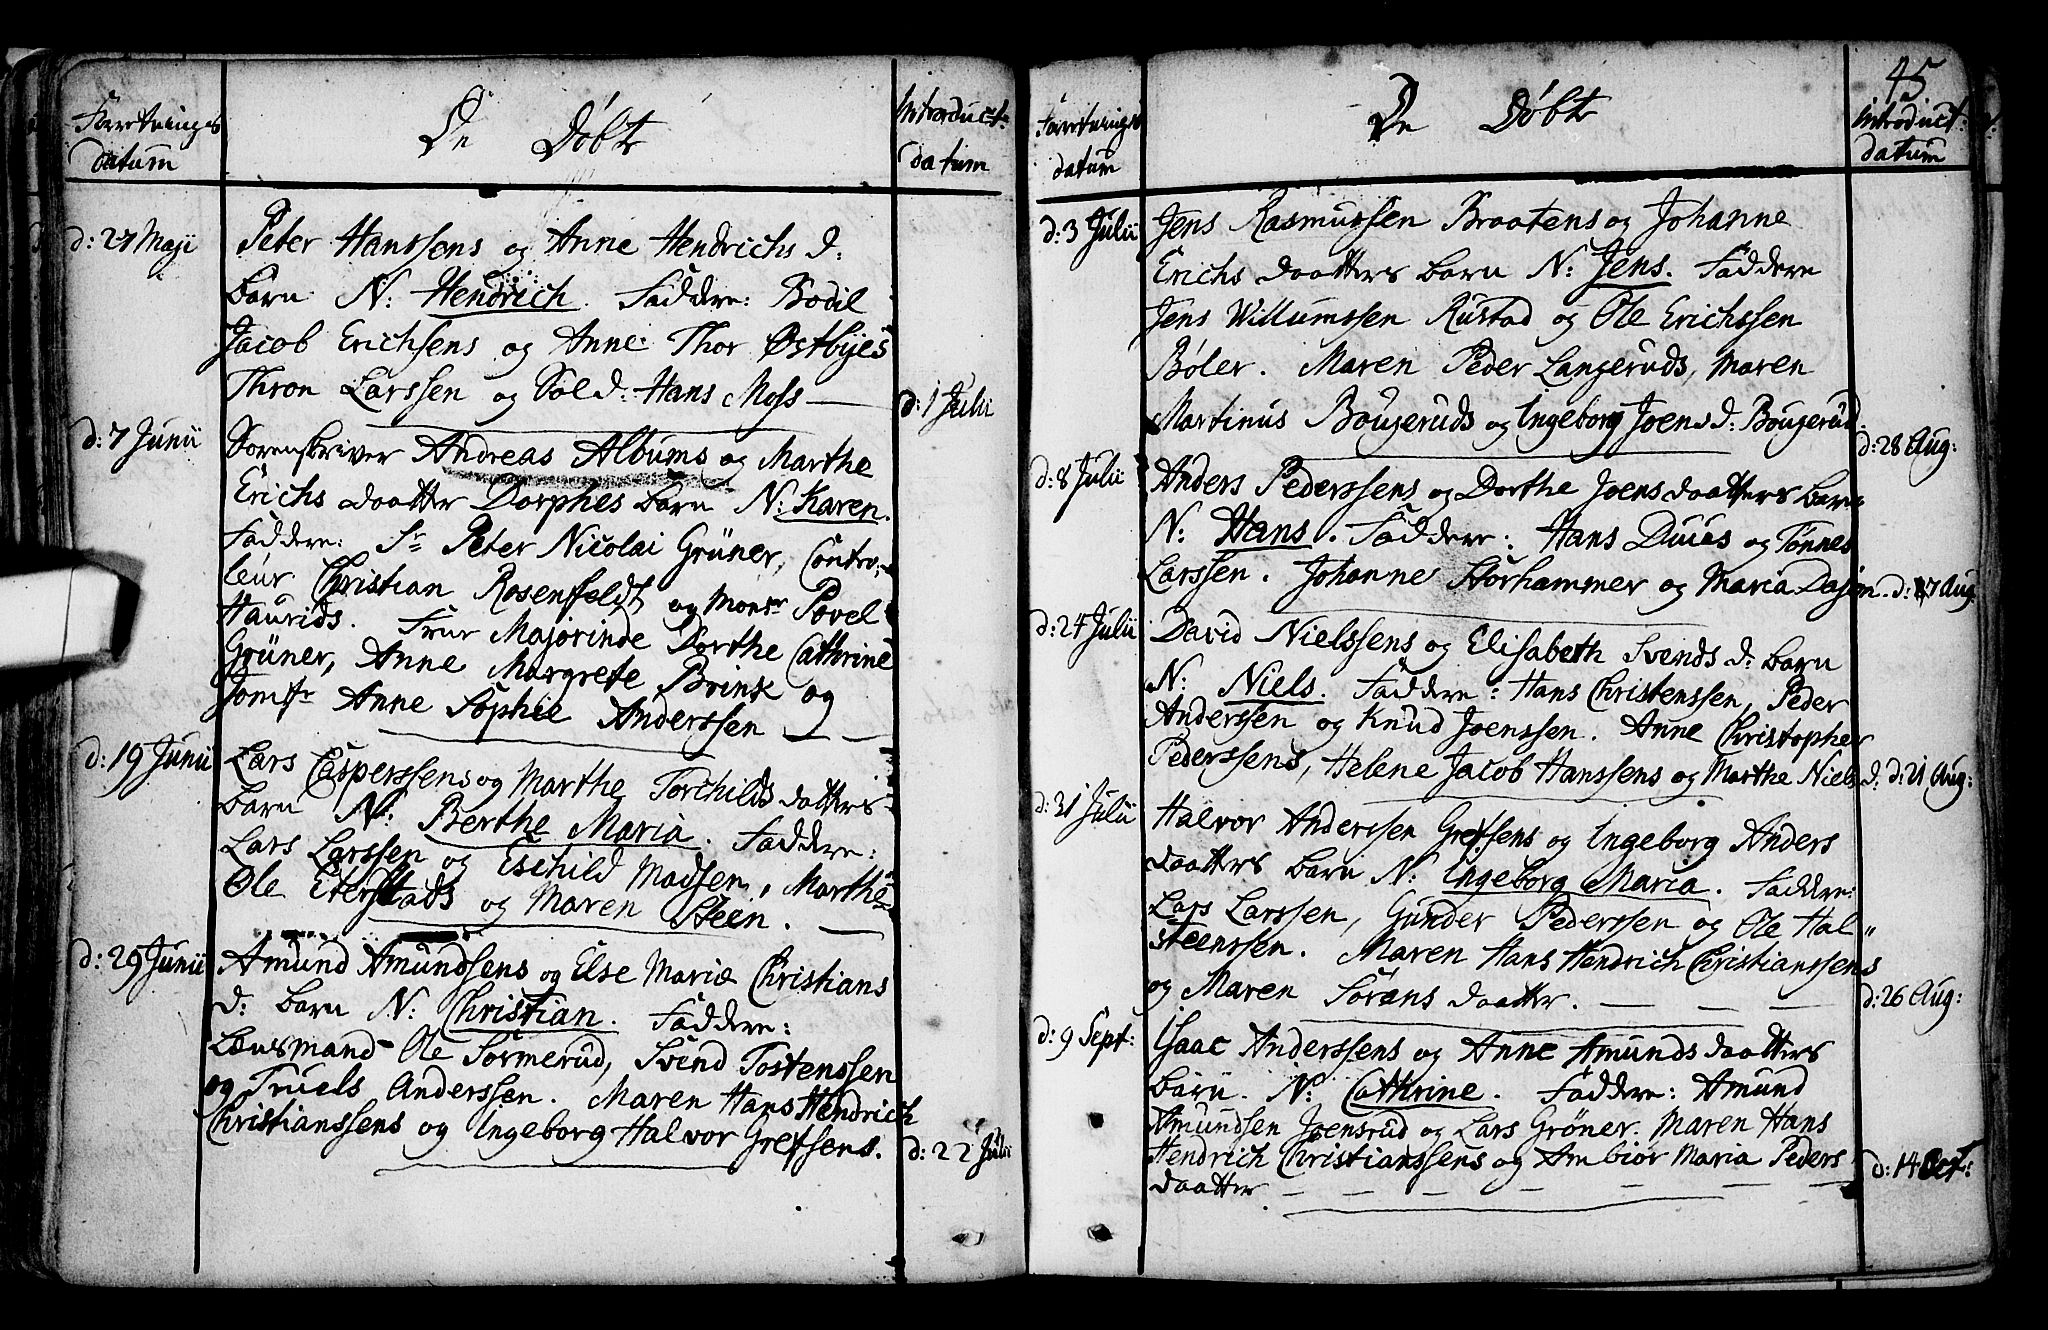 Forretnings
datum
De Døbte
Introduct:
datum
d: 27 Maji
Peter Hanssens og Anne Hendrichs d:
barn N: Hendrich. Faddere: Bodil
Jacob Erichsens og Anne Thor Østbyes
Thron Larssen og Sold: Hans Moss —
d: 1 Julii
d: 7 Junii
Sorenskriver Andreas Albums og Marthe
Erichs daatter Dorphes barn N: Karen.
Faddere: Sr Peter Nicolai Grüner, Contro-
leur Christian Rosenfeldt og Monsr Povel
Haurids. Frue Majorinde Dorthe Cathrine
Grüner, Anne Margrete Brink og
Jomfr Anne Sophie Anderssen — —
d: 19 Junii
Lars Casperssens og Marthe Torchilds daatters
barn N: Berthe Maria. Faddere:
Lars Larssen og Eschild Madsen, Marthe
Ole Eterstads og Maren Steen. —
d: 29 Junii
Amund Amundsens og Else Mariæ Christians
d: barn N: Christian. Faddere:
Lænsmand Ole Sormerud, Svend Tostenssen
og Truels Anderssen. Maren Hans Hendrich
Christianssens og Ingeborg Halvor Grefsens.
d: 22 Julii
45
Forretnings
datum
De Døbte
Introduct:
datum
d: 3 Julii
Jens Rasmussen Braatens og Johanne
Erichs daatters barn N: Jens. Faddere
Jens Willumssen Rustad og Ole Erichssen
Bøler. Maren Peder Langeruds, Maren
Martinus Bougeruds og Ingeborg Joens d: Bougerud.
d: 28 Aug:
d: 8 Julii
Anders Pederssens og Dorthe Joensdaatters barn
N: Hans. Faddere: Hans Duus og Tønnes
Larssen. Johanne Storhammer og Maria Dasjon.
d: 17 Aug
d: 24 Julii
David Nielssens og Elisabeth Svends d: barn
N: Niels. Faddere: Hans Christenssen, Peder
Anderssen og Knud Joenssen. Anne Christopher
Pederssens, Helene Jacob Hanssens og Marthe Niels d.
d: 21 Aug:
d: 31 Julii
Halvor Anderssen Grefsens og Ingeborg Anders
daatters barn N: Ingeborg Maria. Faddere:
Lars Larssen, Gunder Pederssen og Ole Hal-
steenssen. Maren Hans Hendrich Christianssens
og Maren Sørens daatter. — — —
d: 26 Aug:
d: 9 Sept:
Isaac Anderssens og Anne Amunds daatters
barn. N: Cathrine. Faddere: Amund
Amundsen Joensrud og Lars Grøner. Maren Hans
Hendrich Christianssens og Ambiør Maria Peders
daatter — — — — — —
d: 14 Oct: